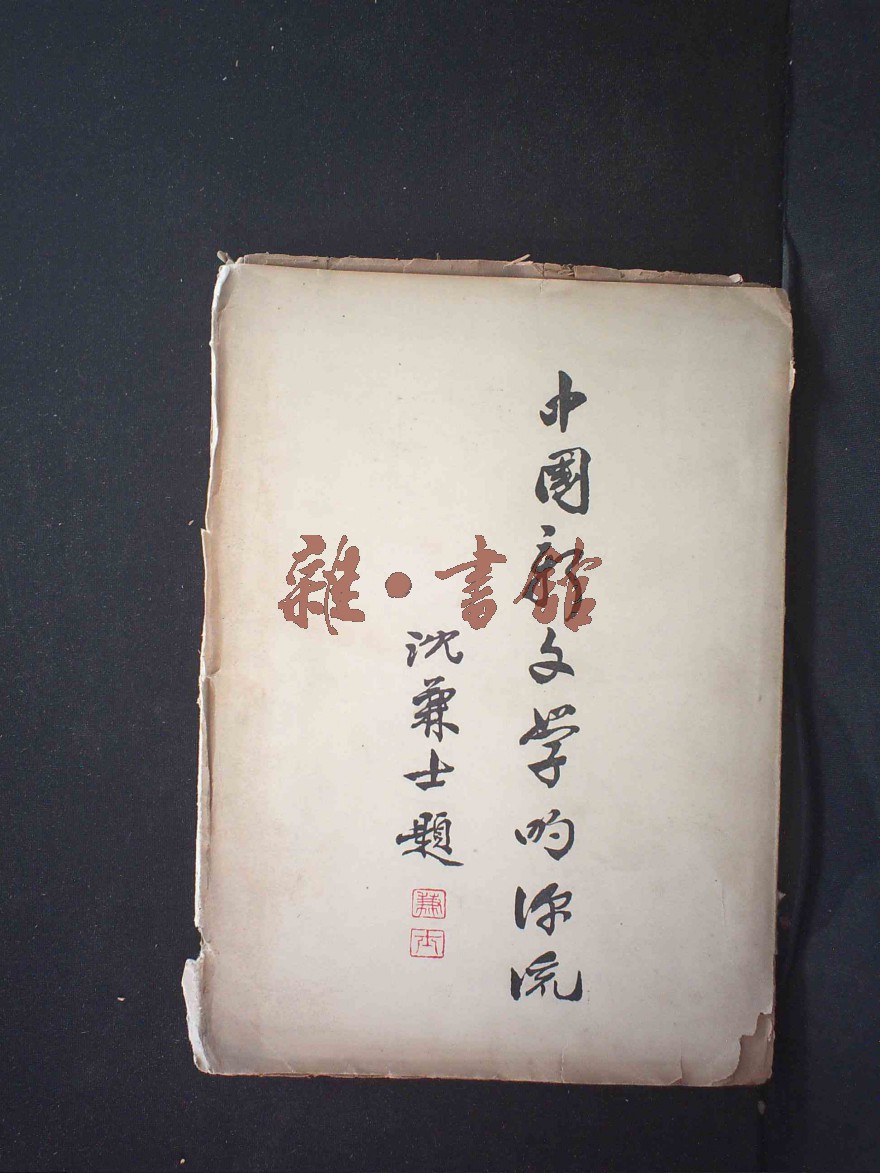 中國新文学的源流
沈兼士題
兼
士
雜·書館